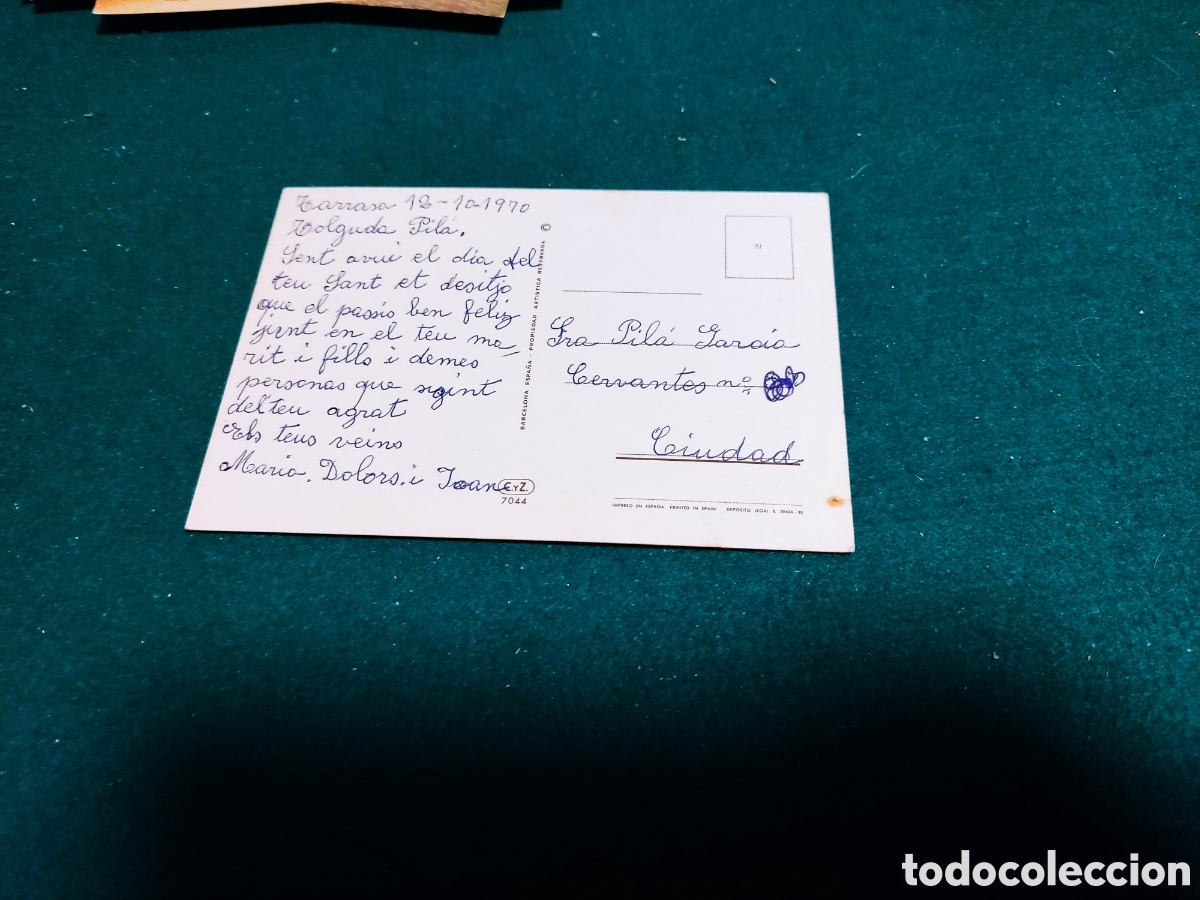 Tarrasa 12-10-1970
Bolguda Pilá.
Sent avui el dia del
teu Sant et desitjo
que el passis ben feliz
junt en el teu ma
rit i fills i demes
personas que sigint
del teu agrat
Els teus veins
Maria. Dolors. i Joan
BARCELONA, ESPAÑA - PROPIEDAD ARTISTICA RESERVADA ©
C.Y Z.
7044
N
Sra Pilá Garcia
Cervantes nº
Ciudad
IMPRESO EN ESPAÑA PRINTED IN SPAIN DEPOSITO LEGAL B.
todocoleccion